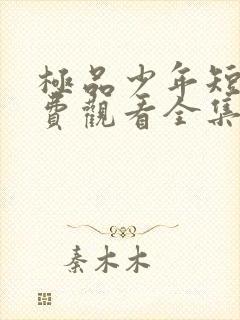 極品少年短
費觀看全集
秦木木